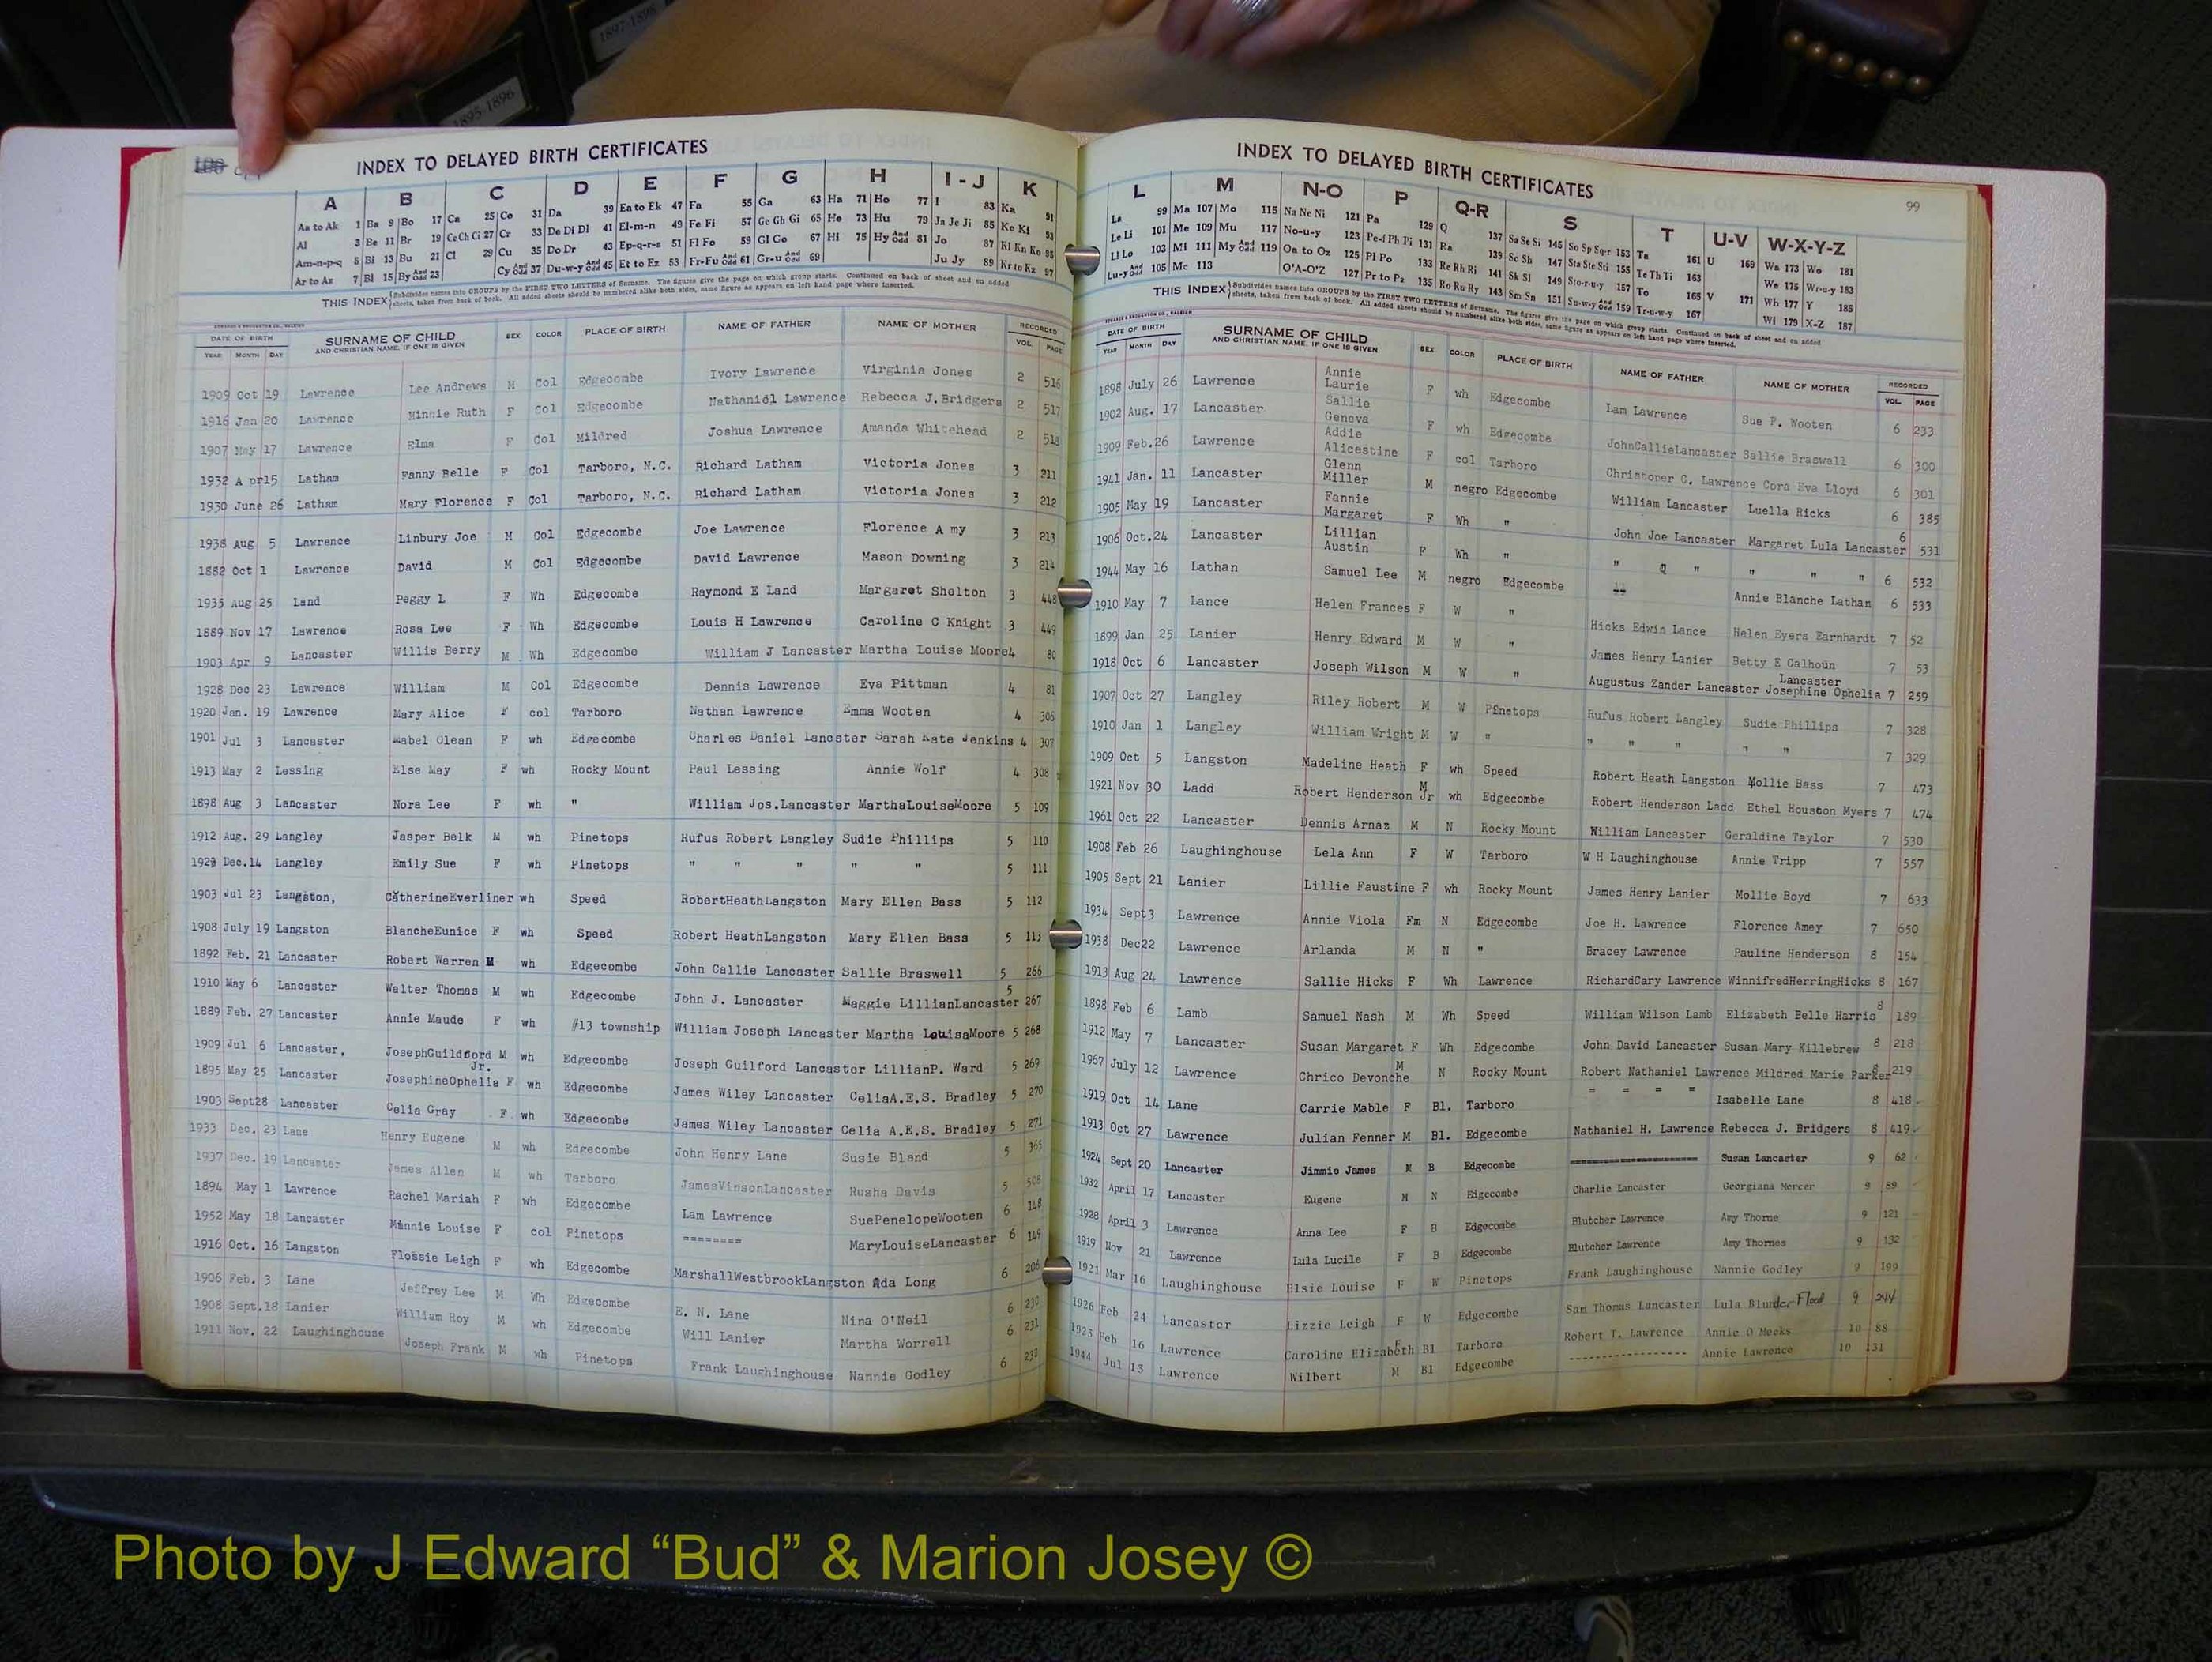 1897-1898
1895-1896
INDEX TO DELAYED BIRTH CERTIFICATES
A B C D E F G H I - J K
Aa to Ak 1 Ba 9 Bo 17 Ca 25 Co 31 Da 39 Ea to Ek 47 Fa 55 Ga 63 Ha 71 Ho 77 I 83 Ka 91
Al 3 Be 11 Br 19 Ce Ch Ci 27 Cr 33 De Di Dl 41 El-m-n 49 Fe Fi 57 Ge Gh Gi 65 He 73 Hu 79 Ja Je Ji 85 Ke Ki 93
Am-n-p-q 5 Bi 13 Bu 21 Cl 29 Cu 35 Do Dr 43 Ep-q-r-s 51 Fl Fo 59 Gl Go 67 Hi 75 Hy And Odd 81 Jo 87 Kl Kn Ko 95
Ar to Az 7 Bl 15 By And Odd 23 Cy And Odd 37 Du-w-y And Odd 45 Et to Ez 53 Fr-Fu And Odd 61 Gr-u And Odd 69 Ju Jy 89 Kr to Kz 97
THIS INDEX Subdivides names into GROUPS by the FIRST TWO LETTERS of Surname. The figures give the page on which group starts. Continued on back of sheet and on added
sheets, taken from back of book. All added sheets should be numbered alike both sides, same figure as appears on left hand page where inserted.
DATE OF BIRTH SURNAME OF CHILD SEX COLOR PLACE OF BIRTH NAME OF FATHER NAME OF MOTHER RECORDED
YEAR MONTH DAY AND CHRISTIAN NAME, IF ONE IS GIVEN VOL. PAGE
1909 Oct 19 Lawrence Lee Andrews M Col Edgecombe Ivory Lawrence Virginia Jones 2 516
1916 Jan 20 Lawrence Minnie Ruth F Col Edgecombe Nathaniel Lawrence Rebecca J. Bridgers 2 517
1907 May 17 Lawrence Elma F Col Mildred Joshua Lawrence Amanda Whitehead 2 518
1932 A pr15 Latham Fanny Belle F Col Tarboro, N.C. Richard Latham Victoria Jones 3 211
1930 June 26 Latham Mary Florence F Col Tarboro, N.C. Richard Latham Victoria Jones 3 212
1938 Aug 5 Lawrence Linbury Joe M Col Edgecombe Joe Lawrence Florence A my 3 213
1882 Oct 1 Lawrence David M Col Edgecombe David Lawrence Mason Downing 3 214
1935 Aug 25 Land Peggy L F Wh Edgecombe Raymond E Land Margaret Shelton 3 448
1889 Nov 17 Lawrence Rosa Lee F Wh Edgecombe Louis H Lawrence Caroline C Knight 3 449
1903 Apr 9 Lancaster Willis Berry M Wh Edgecombe William J Lancaster Martha Louise Moore4 80
1928 Dec 23 Lawrence William M Col Edgecombe Dennis Lawrence Eva Pittman 4 81
1920 Jan. 19 Lawrence Mary Alice F col Tarboro Nathan Lawrence Emma Wooten 4 306
1901 Jul 3 Lancaster Mabel Olean F wh Edgecombe Charles Daniel Lancster Sarah Kate Jenkins 4 307
1913 May 2 Lessing Else May F wh Rocky Mount Paul Lessing Annie Wolf 4 308
1898 Aug 3 Lancaster Nora Lee F wh " William Jos.Lancaster MarthaLouiseMoore 5 109
1912 Aug. 29 Langley Jasper Belk M wh Pinetops Rufus Robert Langley Sudie Phillips 5 110
Dec.14 Langley Emily Sue F wh Pinetops " " " " " 5 111
1903 Jul 23 Langston, CatherineEverliner wh Speed RobertHeathLangston Mary Ellen Bass 5 112
1908 July 19 Langston BlancheEunice F wh Speed Robert HeathLangston Mary Ellen Bass 5 113
1892 Feb. 21 Lancaster Robert Warren M wh Edgecombe John Callie Lancaster Sallie Braswell 5 266
1910 May 6 Lancaster Walter Thomas M wh Edgecombe John J. Lancaster Maggie LillianLancaster 5 267
1889 Feb. 27 Lancaster Annie Maude F wh #13 township William Joseph Lancaster Martha LouisaMoore 5 268
1909 Jul 6 Lancaster, JosephGuildford Jr. M wh Edgecombe Joseph Guilford Lancaster LillianP. Ward 5 269
1895 May 25 Lancaster JosephineOphelia F wh Edgecombe James Wiley Lancaster CeliaA.E.S. Bradley 5 270
1903 Sept28 Lancaster Celia Gray F wh Edgecombe James Wiley Lancaster Celia A.E.S. Bradley 5 271
1933 Dec. 23 Lane Henry Eugene M wh Edgecombe John Henry Lane Susie Bland 5 365
1937 Dec. 19 Lancaster James Allen M wh Tarboro JamesVinsonLancaster Rusha Davis 5 508
1894 May 1 Lawrence Rachel Mariah F wh Edgecombe Lam Lawrence SuePenelopeWooten 6 148
1952 May 18 Lancaster Minnie Louise F col Pinetops ======== MaryLouiseLancaster 6 149
1916 Oct. 16 Langston Flossie Leigh F wh Edgecombe MarshallWestbrookLangston Ada Long 6 206
1906 Feb. 3 Lane Jeffrey Lee M Wh Edgecombe E. N. Lane Nina O'Neil 6 230
1908 Sept.18 Lanier William Roy M wh Edgecombe Will Lanier Martha Worrell 6 231
1911 Nov. 22 Laughinghouse Joseph Frank M wh Pinetops Frank Laughinghouse Nannie Godley 6 232
INDEX TO DELAYED BIRTH CERTIFICATES
99
L M N-O P Q-R S T U-V W-X-Y-Z
La 99 Ma 107 Mo 115 Na Ne Ni 121 Pa 129 Q 137 Sa Se Si 145 So Sp Sq-r 153 Ta 161 U 169 Wa 173 Wo 181
Le Li 101 Me 109 Mu 117 No-u-y 123 Pe-f Ph Pi 131 Ra 139 Sc Sh 147 Sta Ste Sti 155 Te Th Ti 163 We 175 Wr-u-y 183
Ll Lo 103 Mi 111 My And Odd 119 Oa to Oz 125 Pl Po 133 Re Rh Ri 141 Sk Sl 149 Sto-r-u-y 157 To 165 V 171 Wh 177 Y 185
Lu-y And Odd 105 Mc 113 O'A-O'Z 127 Pr to Pz 135 Ro Ru Ry 143 Sm Sn 151 Su-w-y And Odd 159 Tr-u-w-y 167 Wi 179 X-Z 187
THIS INDEX Subdivides names into GROUPS by the FIRST TWO LETTERS of Surname. The figures give the page on which group starts. Continued on back of sheet and on added
sheets, taken from back of book. All added sheets should be numbered alike both sides, same figure as appears on left hand page where inserted.
DATE OF BIRTH SURNAME OF CHILD SEX COLOR PLACE OF BIRTH NAME OF FATHER NAME OF MOTHER RECORDED
YEAR MONTH DAY AND CHRISTIAN NAME, IF ONE IS GIVEN VOL. PAGE
1898 July 26 Lawrence Annie Laurie F wh Edgecombe Lam Lawrence Sue P. Wooten 6 233
1902 Aug. 17 Lancaster Sallie Geneva F wh Edgecombe JohnCallieLancaster Sallie Braswell 6 300
1909 Feb.26 Lawrence Addie Alicestine F col Tarboro Christoper C. Lawrence Cora Eva Lloyd 6 301
1941 Jan. 11 Lancaster Glenn Miller M negro Edgecombe William Lancaster Luella Ricks 6 385
1905 May 19 Lancaster Fannie Margaret F Wh " John Joe Lancaster Margaret Lula Lancaster 6 531
1906 Oct.24 Lancaster Lillian Austin F Wh " " " " " " 6 532
1944 May 16 Lathan Samuel Lee M negro Edgecombe Annie Blanche Lathan 6 533
1910 May 7 Lance Helen Frances F W " Hicks Edwin Lance Helen Eyers Earnhardt 7 52
1899 Jan 25 Lanier Henry Edward M W " James Henry Lanier Betty E Calhoun 7 53
1918 Oct 6 Lancaster Joseph Wilson M W " Augustus Zander Lancaster Josephine Ophelia Lancaster 7 259
1907 Oct 27 Langley Riley Robert M W Pinetops Rufus Robert Langley Sudie Phillips 7 328
1910 Jan 1 Langley William Wright M W " " " " " " 7 329
1909 Oct 5 Langston Madeline Heath F wh Speed Robert Heath Langston Mollie Bass 7 473
1921 Nov 30 Ladd Robert Henderson Jr M wh Edgecombe Robert Henderson Ladd Ethel Houston Myers 7 474
1961 Oct 22 Lancaster Dennis Arnaz M N Rocky Mount William Lancaster Geraldine Taylor 7 530
1908 Feb 26 Laughinghouse Lela Ann F W Tarboro W H Laughinghouse Annie Tripp 7 557
1905 Sept 21 Lanier Lillie Faustine F wh Rocky Mount James Henry Lanier Mollie Boyd 7 633
1934 Sept3 Lawrence Annie Viola Fm N Edgecombe Joe H. Lawrence Florence Amey 7 650
1938 Dec22 Lawrence Arlanda M N " Bracey Lawrence Pauline Henderson 8 154
1913 Aug 24 Lawrence Sallie Hicks F Wh Lawrence RichardCary Lawrence WinnifredHerringHicks 8 167
1898 Feb 6 Lamb Samuel Nash M Wh Speed William Wilson Lamb Elizabeth Belle Harris 8 189
1912 May 7 Lancaster Susan Margaret F Wh Edgecombe John David Lancaster Susan Mary Killebrew 8 218
1967 July 12 Lawrence Chrico Devonche M N Rocky Mount Robert Nathaniel Lawrence Mildred Marie Parker 8 219
1919 Oct 14 Lane Carrie Mable F Bl. Tarboro = = = = Isabelle Lane 8 418
1913 Oct 27 Lawrence Julian Fenner M Bl. Edgecombe Nathaniel H. Lawrence Rebecca J. Bridgers 8 419
1924 Sept 20 Lancaster Jimmie James M B Edgecombe ================== Susan Lancaster 9 62
1932 April 17 Lancaster Eugene M N Edgecombe Charlie Lancaster Georgiana Mercer 9 89
1928 April 3 Lawrence Anna Lee F B Edgecombe Blutcher Lawrence Amy Thorne 9 121
1919 Nov 21 Lawrence Lula Lucile F B Edgecombe Blutcher Lawrence Amy Thornes 9 132
1921 Mar 16 Laughinghouse Elsie Louise F W Pinetops Frank Laughinghouse Nannie Godley 9 199
1926 Feb 24 Lancaster Lizzie Leigh F W Edgecombe Sam Thomas Lancaster Lula 9 244
1923 Feb 16 Lawrence Caroline Elizabeth F Bl Tarboro Robert T. Lawrence Annie O Meeks 10 88
1944 Jul 13 Lawrence Wilbert M Bl Edgecombe ---------------- Annie Lawrence 10 131
Photo by J Edward “Bud” & Marion Josey ©